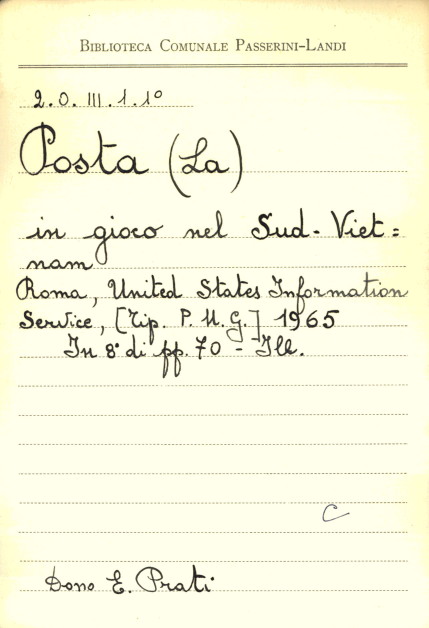 BIBLIOTECA COMUNALE PASSERINI-LANDI
2.O.III.1.1º
Posta (La)
in gioco nel Sud-Viet=
nam
Roma, United States Information
Service, [Tip. P.U.G.] 1965
In 8° di pp. 70 - Ill.
C
Dono E. Prati